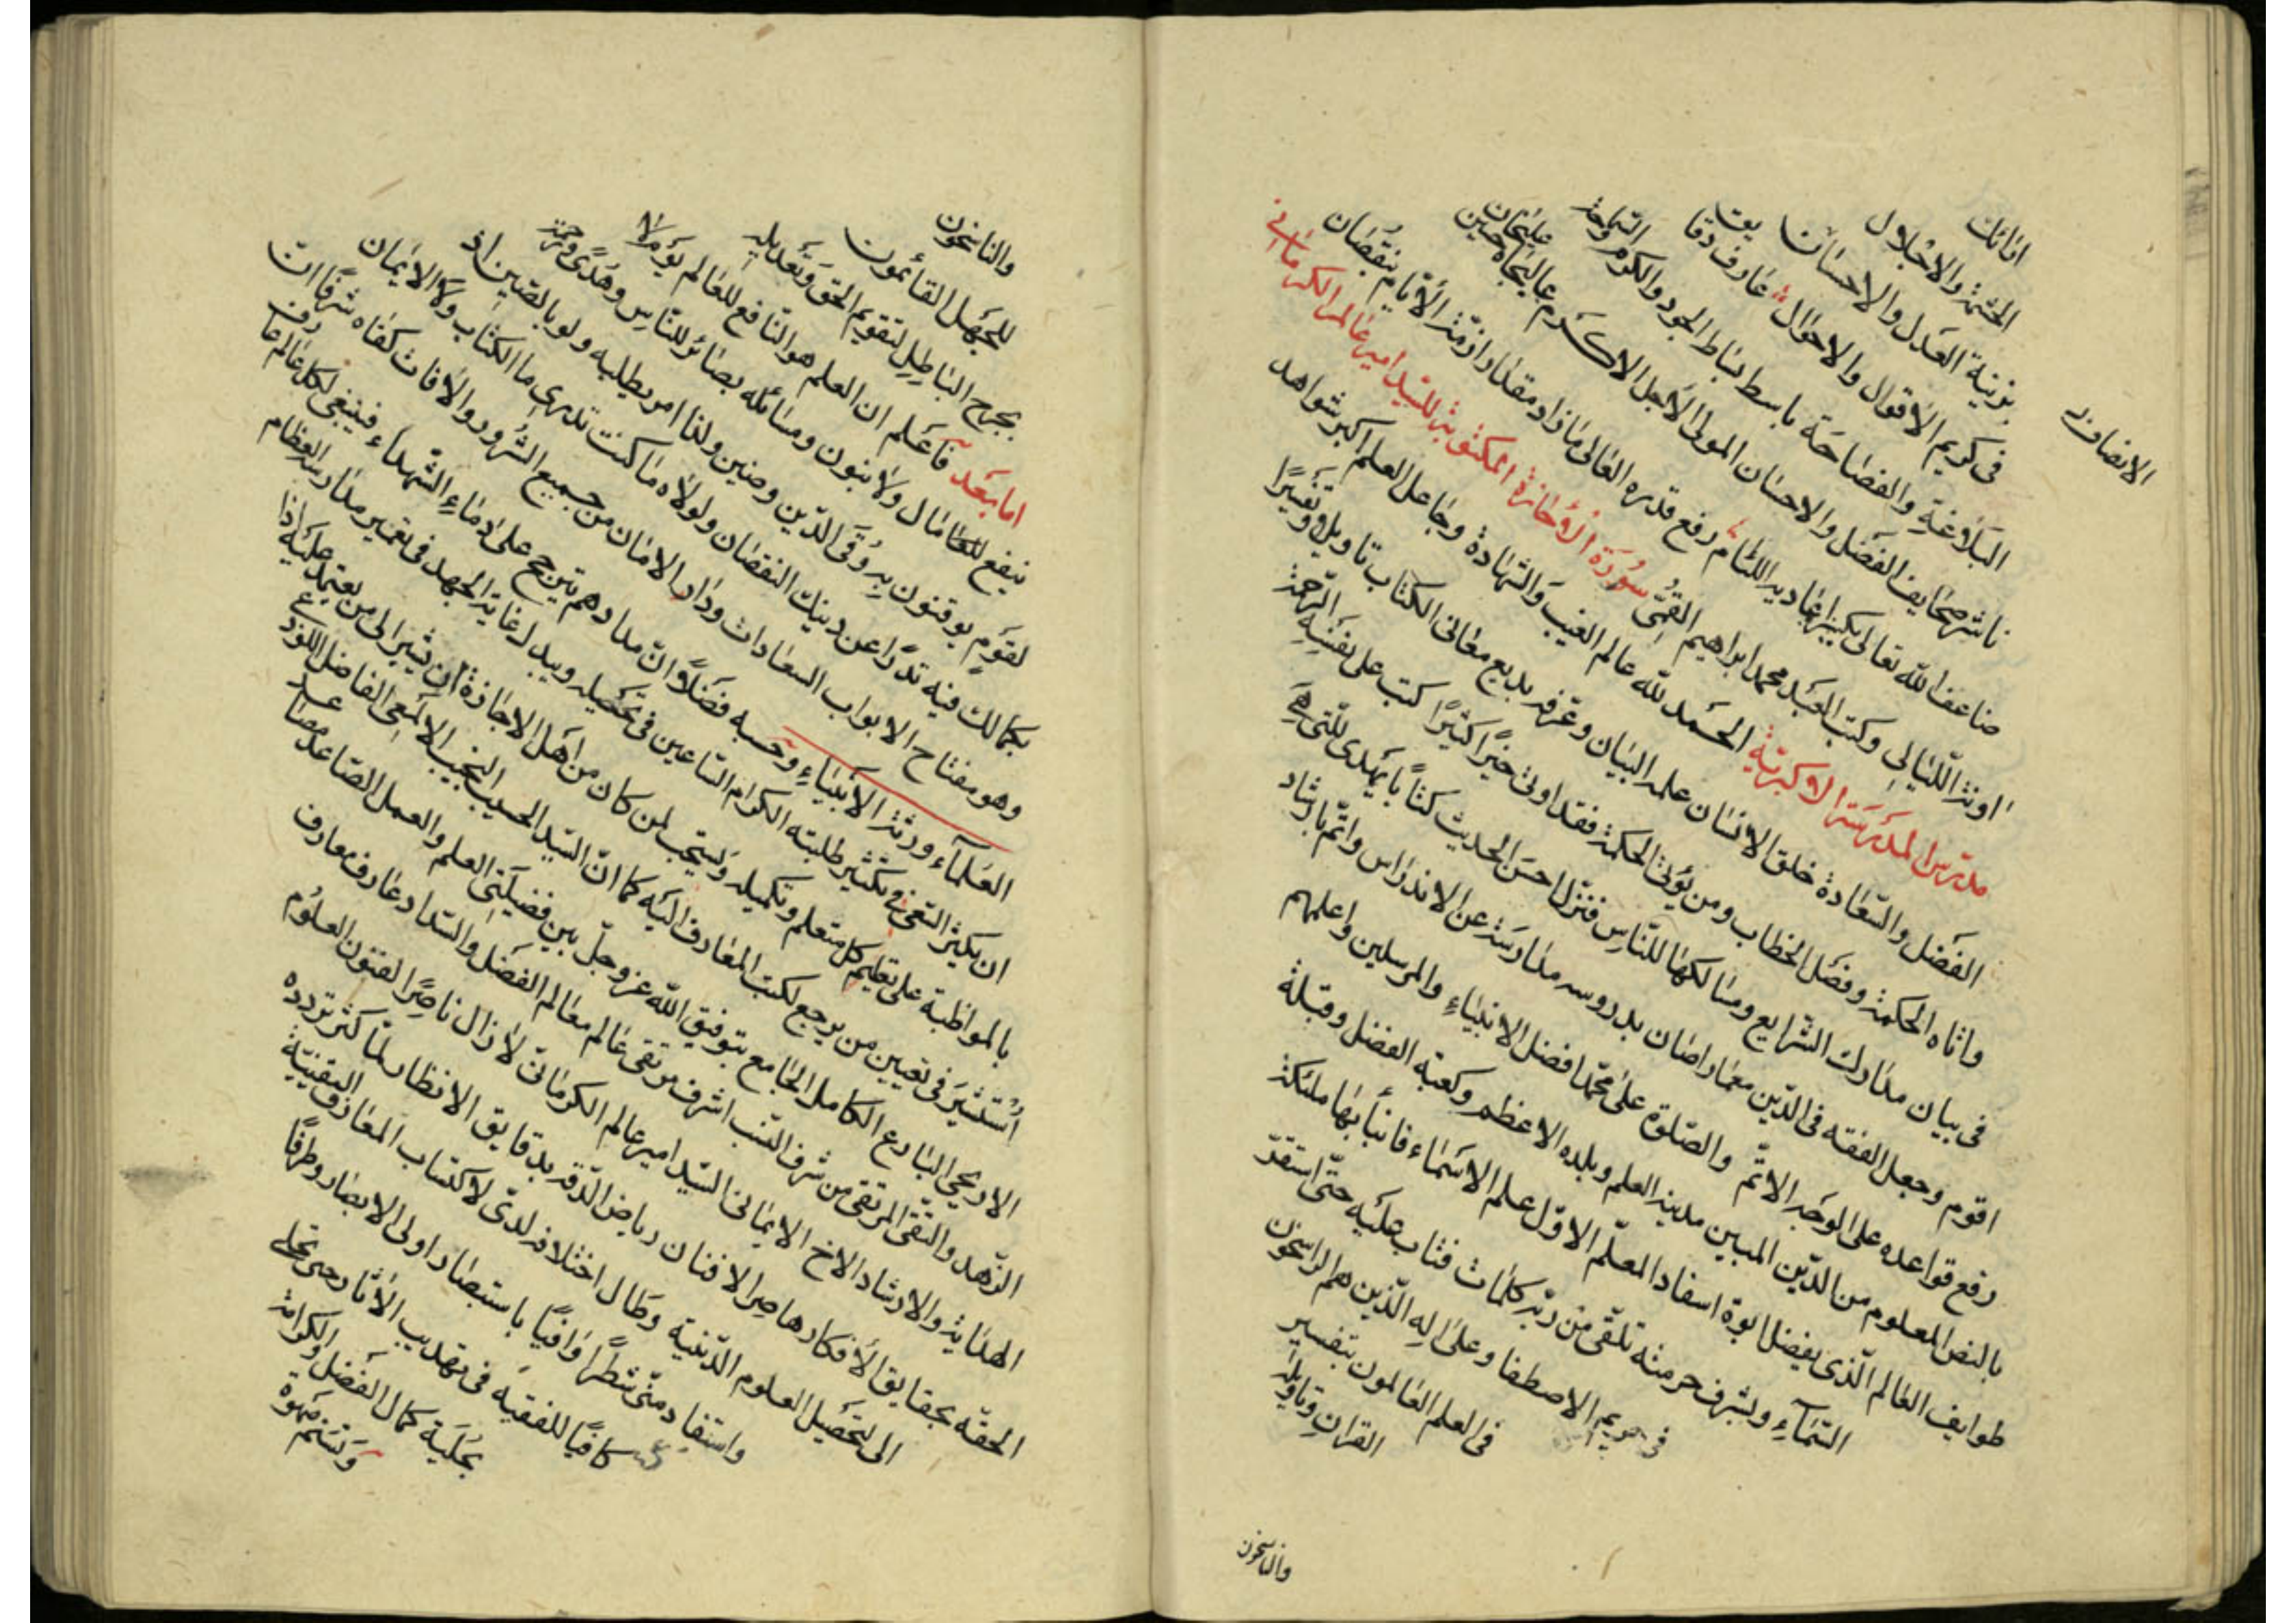 اثاث
الحشمة والاجلال
بزينة العدل والاحسان
فى كريم الاقوال والاحوال عارف دقا يق
البلاغة والفصاحة باسط بساط الجود والكرم والسماحة
ناشر صحايف الفضل والاحسان المولى الاجل الاكرم عاليجاه حسين عليخان
ضاعف الله تعالى رفع قدره العالى ما زاد مقدار ازمنة الايام بنقصان
اونة الليالى وكتب العبد محمد ابراهيم القمى سورة الاجازة المكتوبة للسيد امير عالم الكرمانى
مدرس المدرسة الاكبرية الحمد لله عالم الغيب والشهادة وجاعل العلم اكبر شواهد
الفضل والسعادة خلق الانسان علمه البيان وعرفه بديع معانى الكتاب تاويلا وتفسيرا
واتاه الحكمة وفصل الخطاب ومن يؤتى الحكمة فقد اوتى خيرا كثيرا كتب على نفسه الرحمة
فى بيان مدارك الشرايع ومسالكها للناس فنزل احسن الحديث كتابا يهدى للتى هى
اقوم وجعل الفقه فى الدين معمارا صان بدروسه مدارسه عن الاندراس واتم بارشاد
رفع قواعده على الوجه الاتم والصلوة على محمد افضل الانبياء والمرسلين واعلمهم
بالنص المعلوم من الدين المبين مدينة العلم وبلده الاعظم وكعبة الفضل وقبلة
طوايف العالم الذى بفضل ابوة اسفاد المعلم الاول علم الاسماء فانبأ بها ملئكة
السماء وبشرف حرمته تلقى من ربه كلمات فتاب عليه حتى استقر
فى حريم الاصطفا وعلى اله الذين هم الراسخون
فى العلم العالمون بتفسير
القران وتاويله
الانصاف
والناسخون
والناسخون
للجهل القائمون
بجرح الباطل لتقويم الحق وتعديله
اما بعد فاعلم ان العلم هو النافع للعالم يوم لا
ينفع مال ولا بنون ومسائله بصائر للناس وهدى ورحمة
لقوم يوقنون به وقى الدين وصين ولذا امر بطلبه ولو بالصين اذ
بكمالك فيه تدرا عن دينك النقصان ولولاه ما كنت تدرى ما الكتاب ولا الايمان
وهو مفتاح الابواب السعادات ودار الامان من جميع الشرور والافات كفاه شرفا ان
العلماء ورثة الانبياء وحسبه فضلا ان مدادهم يترجح على دماء الشهداء فينبغى لكل عالم عارف
ان يكثر السعى فى تكثير طلبته الكرام الساعين فى تحصيله ويبذل غاية الجهد فى تعمير مدارسه العظام
بالمواظبة على تعليم كل متعلم وتكميله ويستحب لمن كان من اهل الاجازة ان يشير الى من يعتمد عليه اذا
استشير فى تعيين من يرجع لكسب المعارف اليه كما ان السيد الحسيب النجيب الالمعى الفاضل اللوذعى
الاريحى البارع الكامل الجامع بتوفيق الله عز وجل بين فضيلتى العلم والعمل الصاعد مصاعد
الزهد والتقى المرتقى من شرف النسب اشرف مرتقى عالم معالم الفضل والسداد عارف معارف
الهداية والارشاد الاخ الايمانى السيد امير عالم الكرمانى لا زال ناصرا لفنون العلوم
الحقه بحقايق الافكار هاصرا لافنان رياض الدقة بدقايق الانظار لما كثر تردده
الى لتحصيل العلوم الدينية وطال اختلافه لدى لاكتساب المعارف اليقينية
واستفاد منى شطرا وافيا باستبصار اولى الابصار وطرفا
كافيا للفقيه فى تهذيب الاثار حتى تحلى
بحلية كمال الفضل والكرامة
وتسنم صهوة